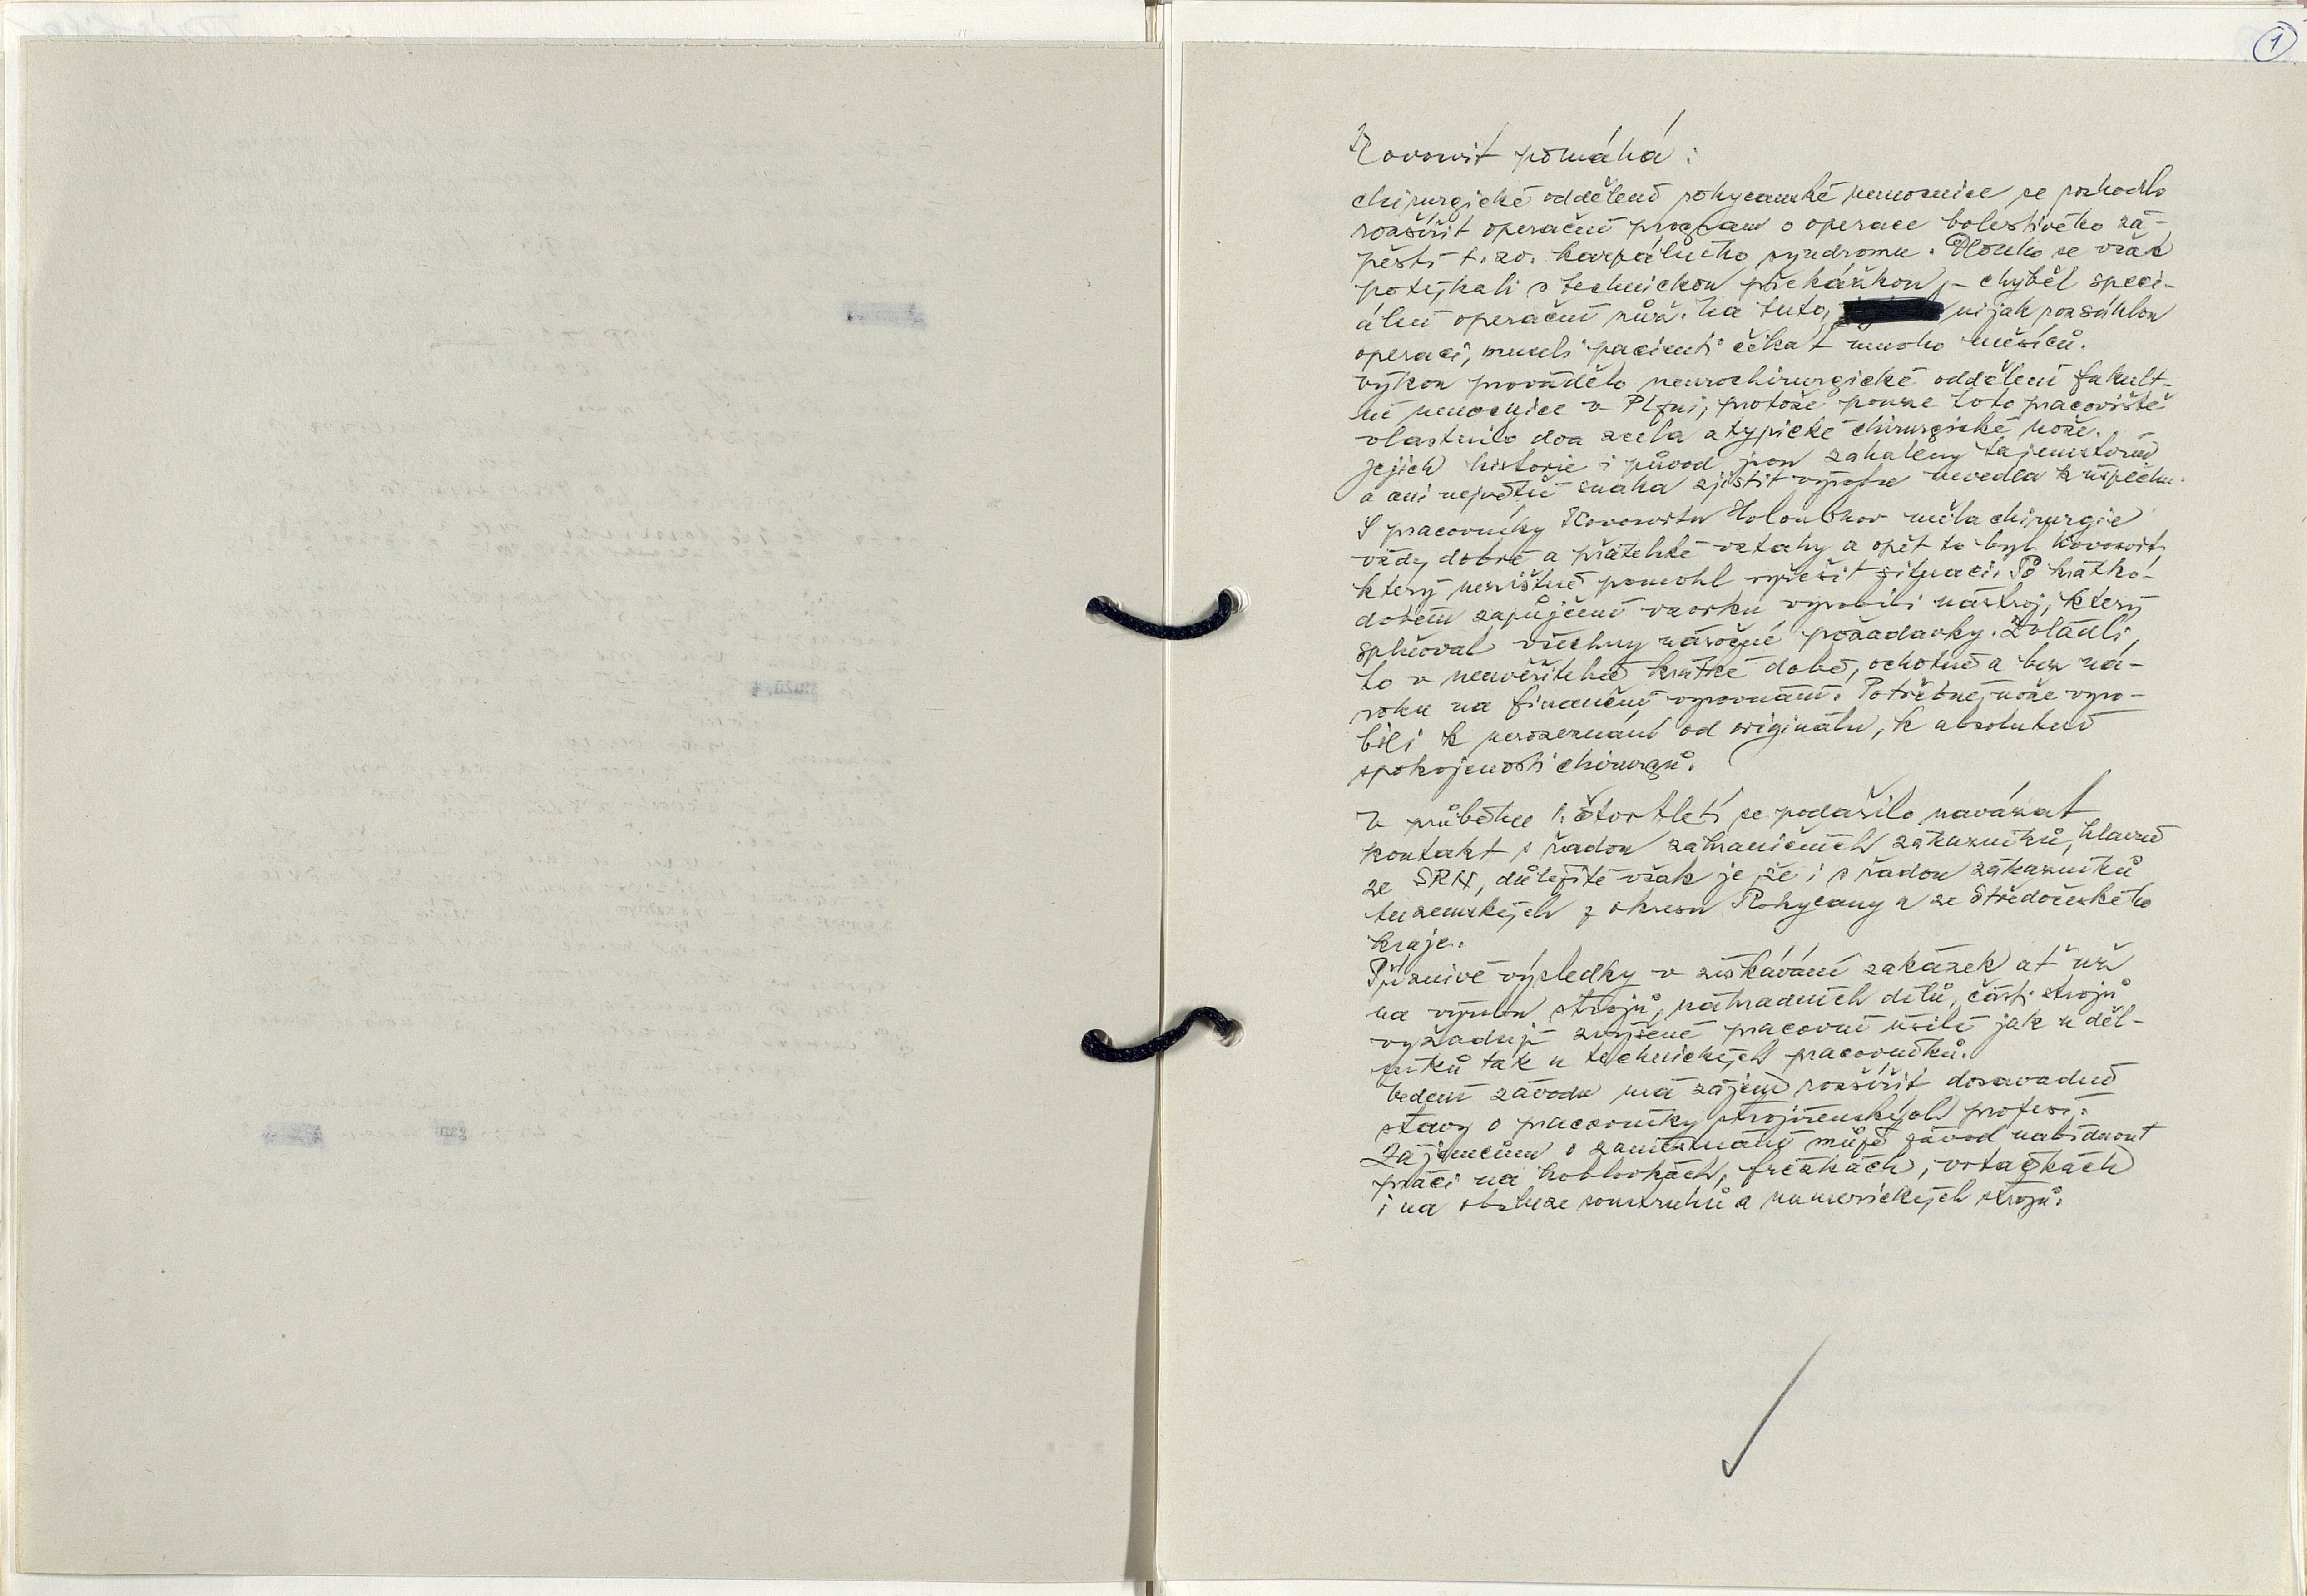 1
Kovosvit pomáhá:
chirurgické oddělení rokycanské nemocnice se rozhodlo
rozšířit operační program o operace bolestivého zá-
pěstí t.zv. karpálního syndromu. Dlouho se však
potýkali s technickou překážkou, - chyběl speci-
ální operační nůž. Na tuto, nijak rozsáhlou
operaci, museli pacienti čekat mnoho měsíců.
Výkon provádělo neurochirurgické oddělení fakult-
ní nemocnice v Plzni, protože pouze toto pracoviště
vlastnilo dva zcela atypické chirurgické nože.
Jejich historie i původ jsou zahaleny tajemstvím
a ani největší snaha zjistit výrobu nevedla k úspěchu.
S pracovníky Kovosvitu Holoubkov měla chirurgie
vždy dobré a přátelské vztahy a opět to byl Kovosvit,
který nezištně pomohl vyřešit situaci. Po krátko-
dobém zapůjčení vzorku vyrobili nástroj, který
splňoval všechny náročné požadavky. Zvládli
to v neuvěřitelně krátké době, ochotně a bez ná-
roku na finanční vyrovnání. Potřebné nože vyro-
bili k nerozeznání od originálu, k absolutní
spokojenosti chirurgů.
V průběhu 1. čtvrtletí se podařilo navázat
kontakt s řadou zahraničních zákazníků, hlavně
ze SRN, důležité však je že i s řadou zákazníků
tuzemských z okresu Rokycany a ze Středočeského
kraje.
Příznivé výsledky v získávání zakázek ať už
na výrobu strojů, náhradních dílů, částí strojů
vyžadují zvýšené pracovní úsilí jak u děl-
níků tak u technických pracovníků.
Vedení závodu má zájem rozšířit dosavadní
stavy o pracovníky strojírenských profesí.
Zájemcům o zaměstnání může závod nabídnout
práci na hoblovkách, frézkách, vrtačkách
i na obsluze soustruhů a numerických strojů.